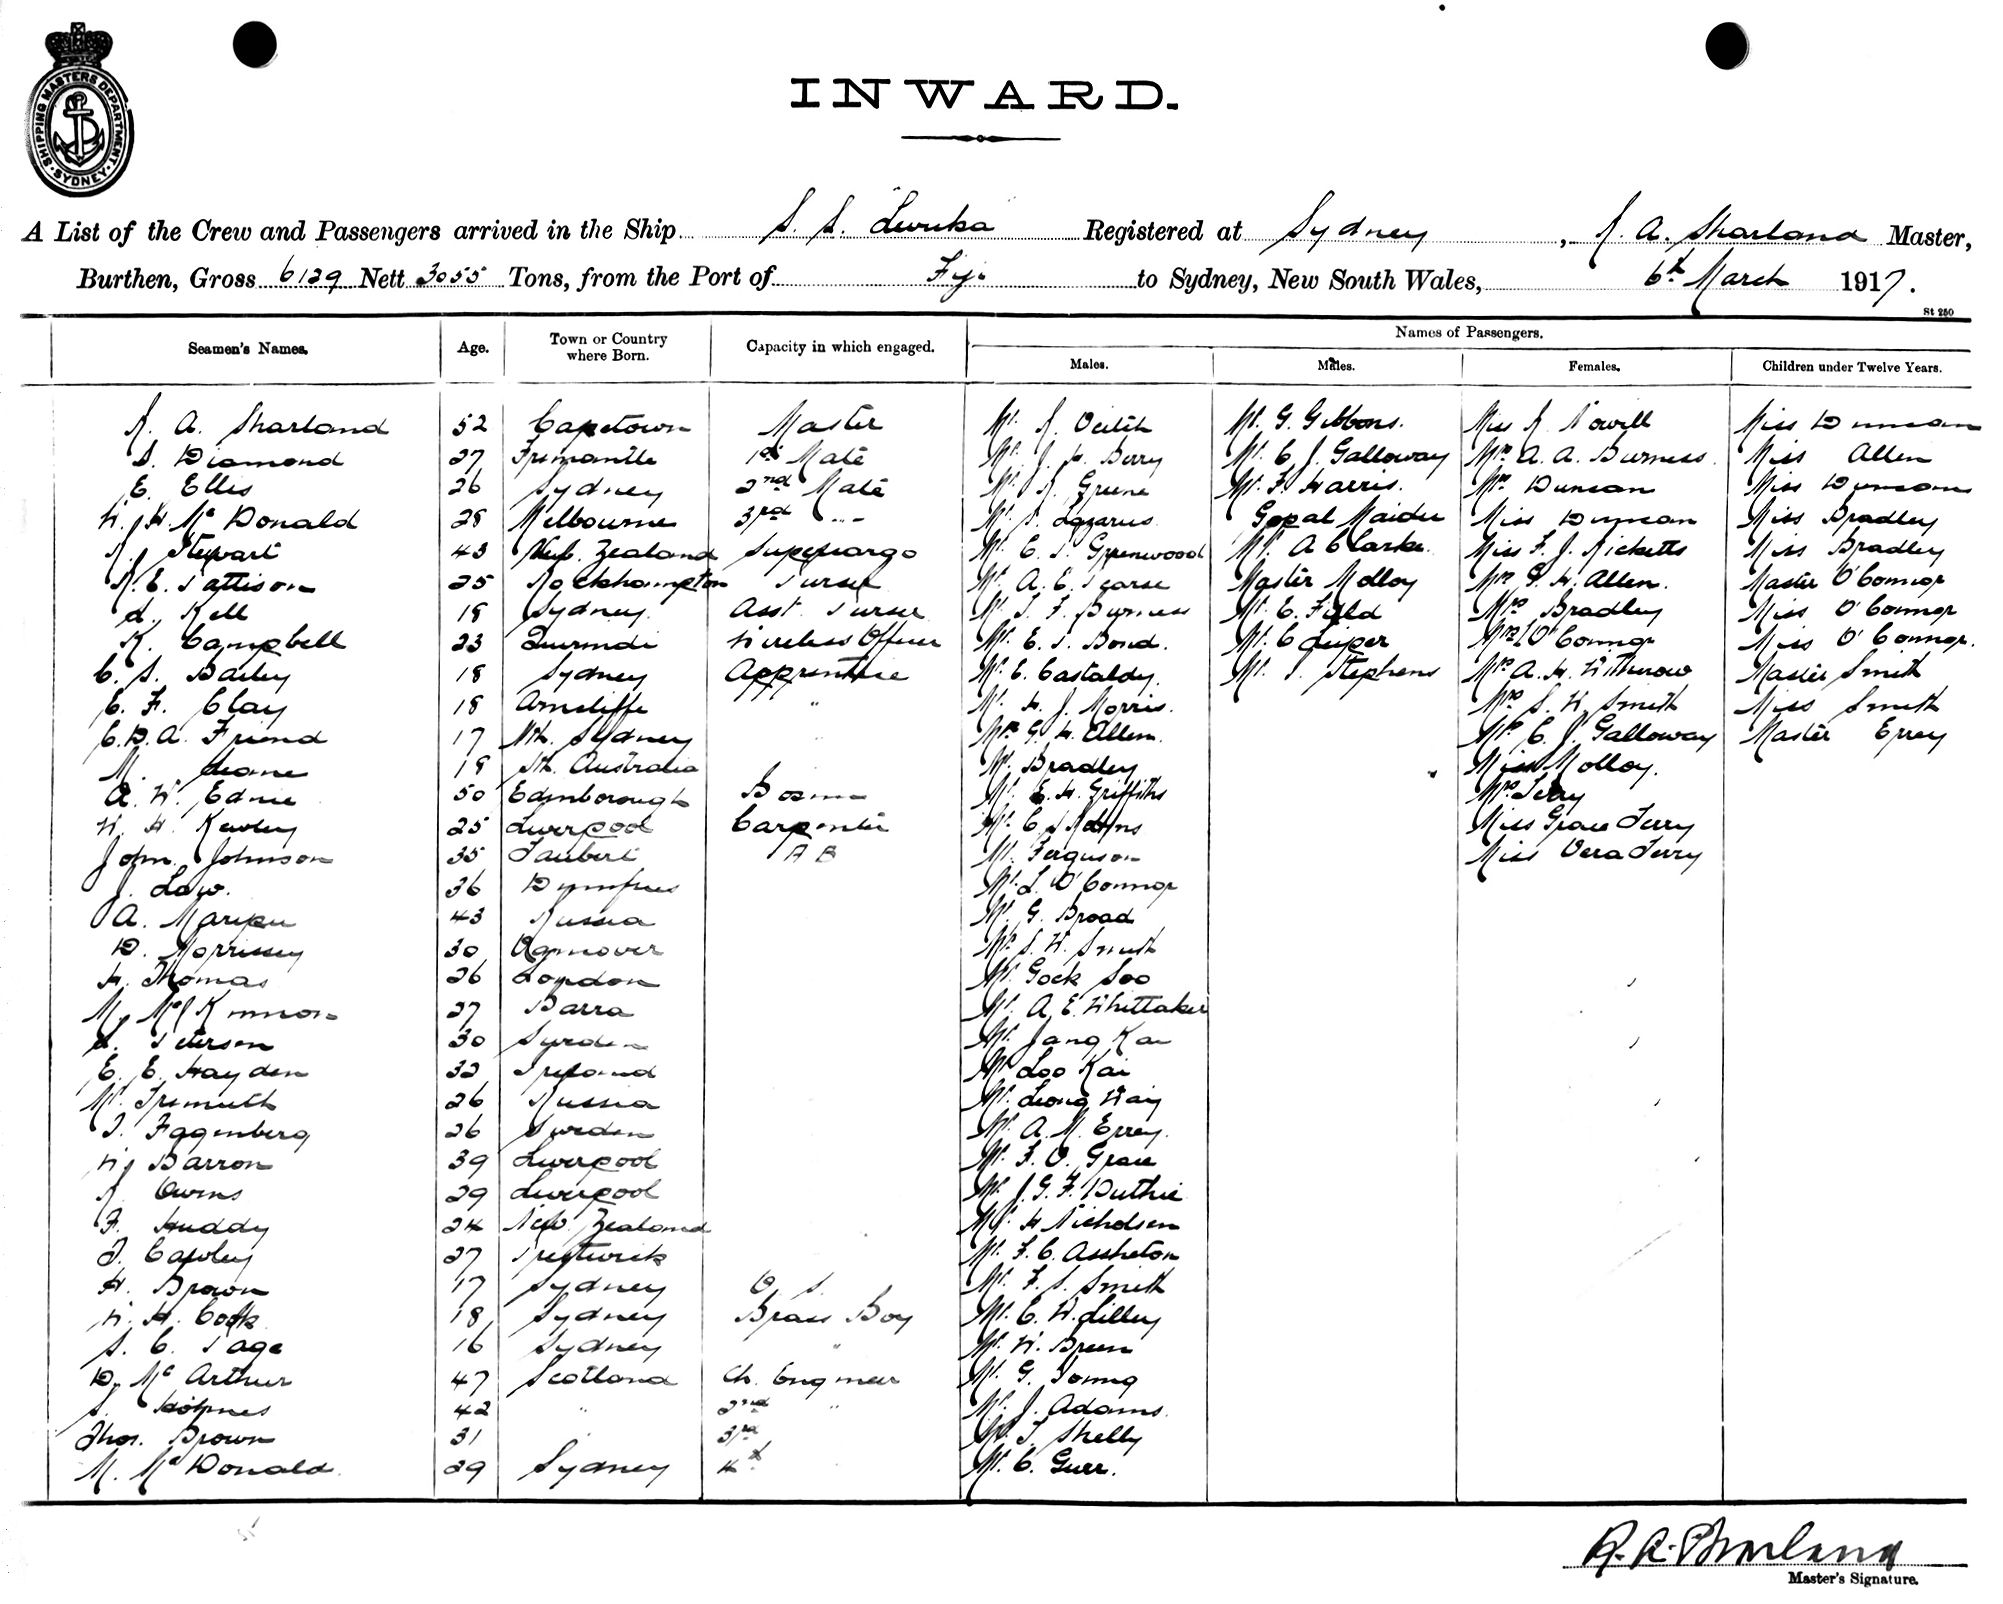 SHIPPING MASTERS DEPARTMENT · SYDNEY ·
INWARD.
A List of the Crew and Passengers arrived in the Ship S. S. Levuka Registered at Sydney, R. A. Sharland Master,
Burthen, Gross 6129 Nett 3055 Tons, from the Port of Fiji to Sydney, New South Wales, 6th March 1917.
St 250
Seamen's Names. Age. Town or Country where Born. Capacity in which engaged. Names of Passengers.
Males. Males. Females. Children under Twelve Years.
R. A. Sharland 52 Capetown Master Mr. R. Veitch Mr. G. Gibbons. Miss R Nowill Miss Duncan
S. Diamond 27 Fremantle 1st Mate Mr. J. H. Berry Mr. C J. Galloway Mrs A. A. Burness. Miss Allen
E. Ellis 26 Sydney 2nd Mate Mr. R Greene Mr. F. Harris. Mrs Duncan Miss Duncan
W. H. McDonald 28 Melbourne 3rd " Mr. S. Lazarus Gopal Maidu Miss Duncan Miss Bradley
R. Stewart 43 New Zealand Supercargo Mr. C. S. Greenwood Mr. A Clarke. Miss F. J. Ricketts Miss Bradley
R. E. Pattison 25 Rockhampton Purser Mr. A. E. Pearse Master Molloy Mrs G. H. Allen. Master O'Connor
L. Kell 18 Sydney. Asst. Purser Mr. T. F. Burness Mr. E. Field Mrs Bradley Miss O'Connor
K. Campbell 23 Quirindi Wireless Officer Mr. E. S. Bond. Mr. C Leiper Mrs O'Connor Miss O'Connor.
C. S. Bailey 18 Sydney Apprentice Mr. E. Castaldy. Mr. P. Stephens Mrs A. H. Witherow Master Smith
E. F. Clay 18 Arncliffe " Mr. H. J. Morris. Mrs S. W. Smith Miss Smith
C. D. A. Friend 17 Nth. Sydney " Mr. G. H. Allen. Mrs C. J. Galloway Master Errey
M. Leane 19 Sth. Australia Mr. Bradley Miss Molloy.
A. W. Ednie 50 Edinborough Bosun Mr. E. H. Griffiths Mrs Terry
W. H. Kewley 25 Liverpool Carpenter Mr. C. S. Adams Miss Grace Terry
John. Johnson 35 A B Mr. Ferguson Miss Vera Terry
J. Law. 36 Dumfries Mr. L. O'Connor
A. 43 Russia Mr. G. Broad
D. Morrissey 30 Mr. S. W. Smith
H. Thomas 26 London Mr. Gock Soo
M. McKinnon 27 Barra Mr. A. E. Whittaker
Petersen 30 Sweden Mr. Jang Kai
E. E. Hayden 32 Ireland Mr. Loo Kai
M. 26 Russia Mr. Leong Way
T. Faggenberg 26 Sweden Mr. A. M. Errey.
W. Barron 39 Liverpool Mr. F. V. Grace
R. Owens 29 Liverpool Mr. J. G. F. Duthie
F. Huddy 24 New Zealand Mr. H Nicholsen
T. Cawley 27 Prestwick Mr. F. C. Assheton
H. Brown 17 Sydney O. S. Mr. F. S. Smith
W. H. Cook 18 Sydney Brass Boy Mr. C. W. Lilley
S. C. Page 16 Sydney " Mr. W. Breen
D. McArthur 47 Scotland Ch. Engineer Mr. G. Young
S. Holmes 42 " 2nd " Mr. J. Adams.
Thos. Brown 31 3rd Mr. T. Shelly
M. McDonald. 29 Sydney 4th Mr. C. Guer.
R. A. Sharland
Master's Signature.